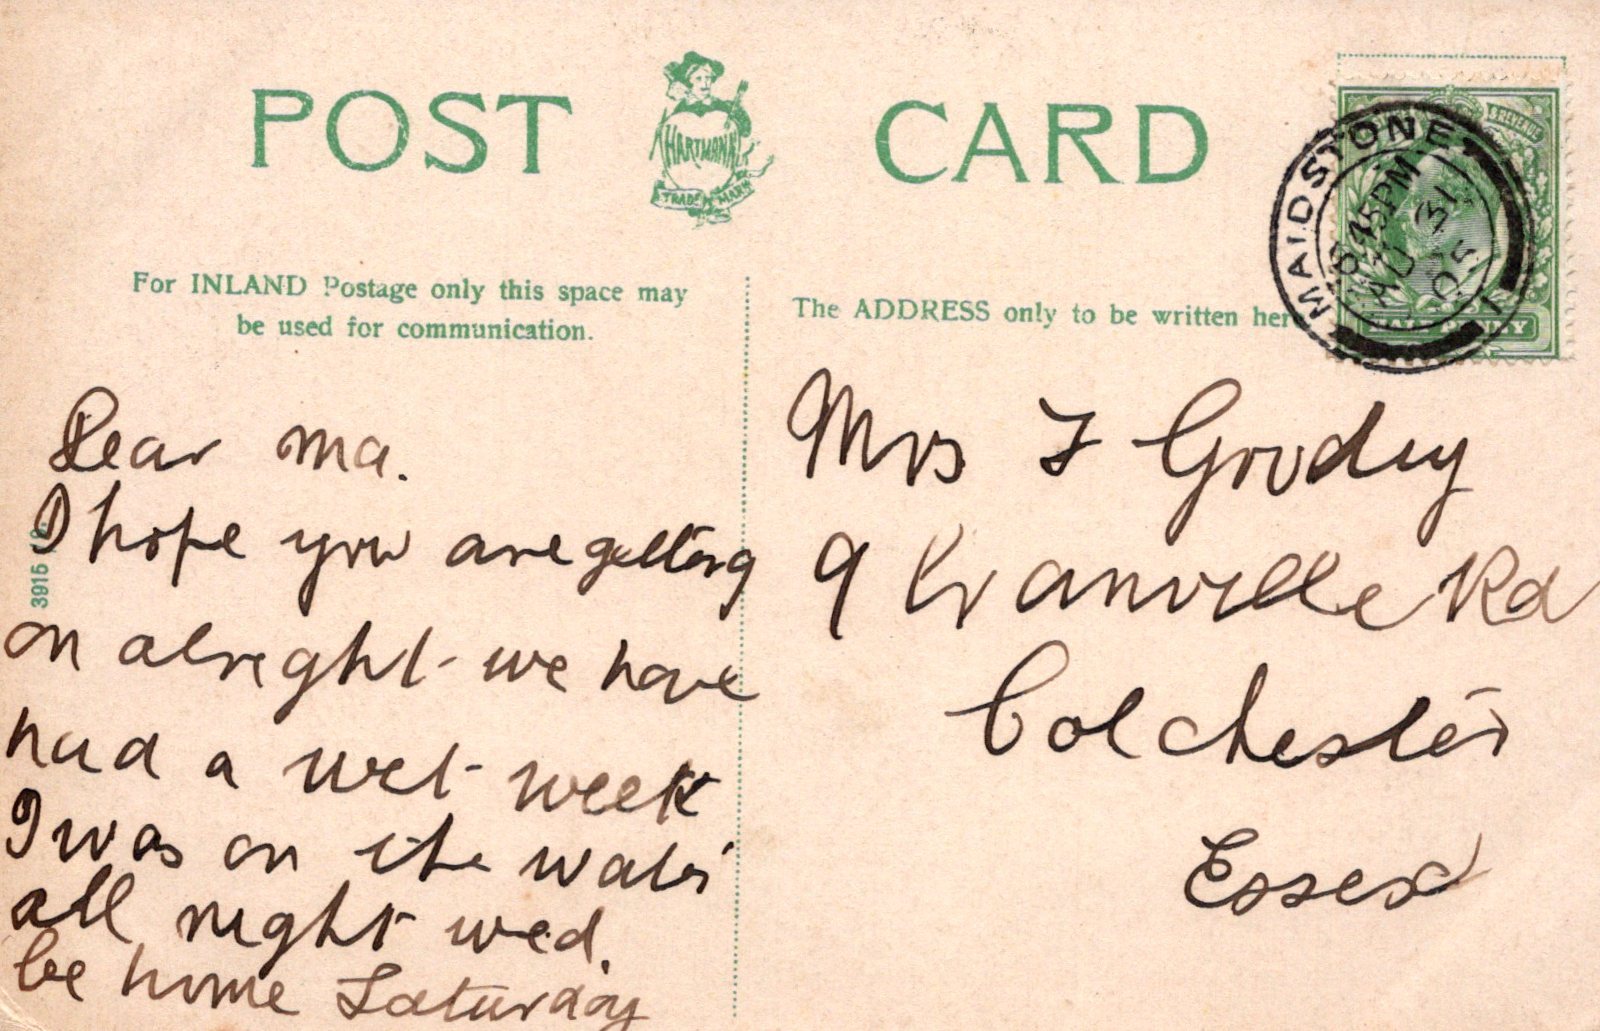 POST CARD
HARTMANN
TRADE MARK
For INLAND Postage only this space may
be used for communication.
The ADDRESS only to be written here
& REVENUE
MAIDSTONE
45PM
AU 31
05
1
HALFPENNY
3915
Dear Ma.
I hope you are getting
on alreght we have
had a wet week
I was on the water
all night wed.
be home Saturday
Mrs F Goodey
9 Granville Rd
Colchester
Essex